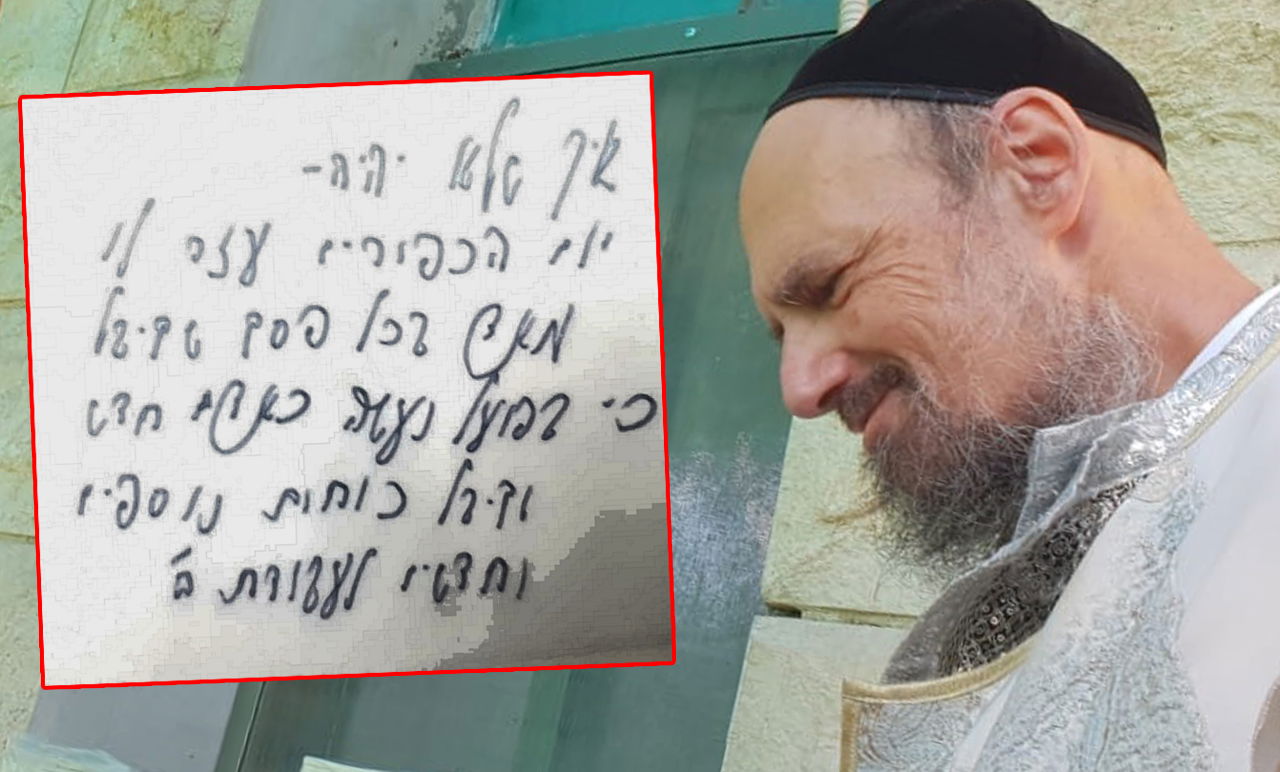 איך שלא יהיה-
יום הכפורים עזר לו
מאד בכל פסח שקיבל
כי בפועל נעשה כאדם חדש
וקיבל כוחות נוספים
וחדשים לעבודת ה'